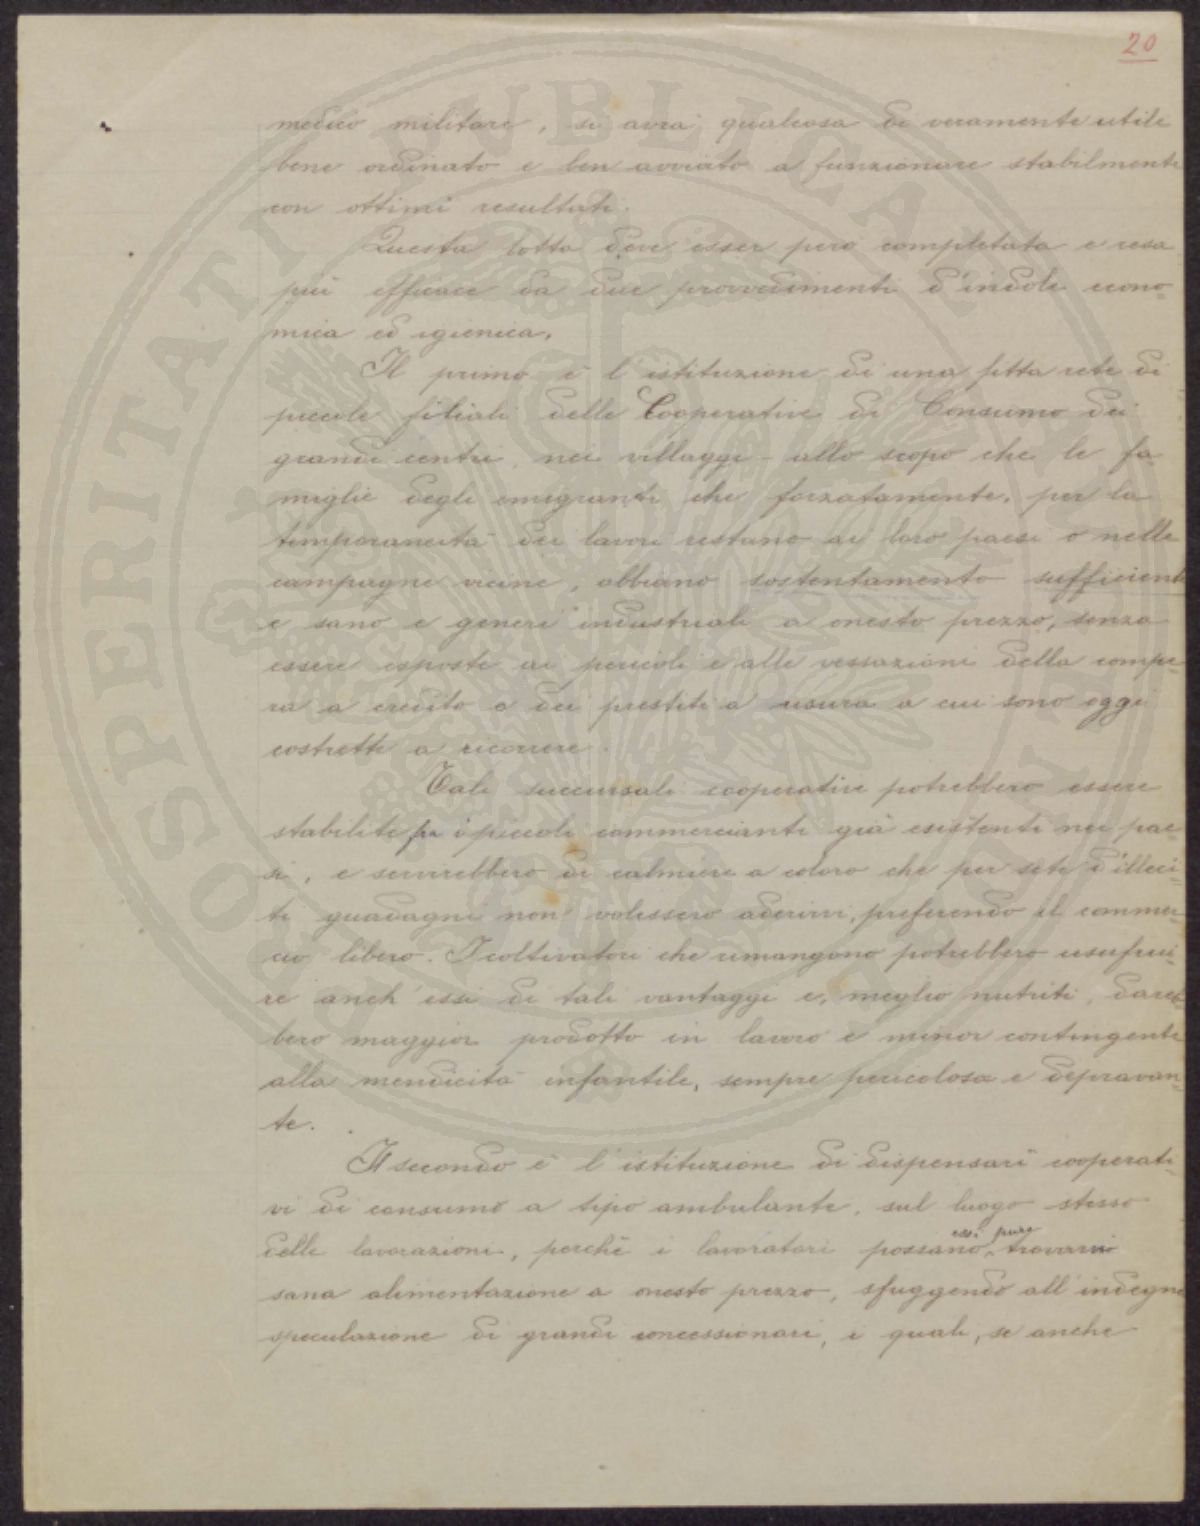 20
medico militare, si avrà qualcosa di veramente utile
bene ordinato e ben avviato a funzionare stabilmente
con ottimi resultati.
Questa lotta deve esser però completata e resa
più efficace da due provvedimenti d'indole econo-
mica ed igienica.
Il primo è l'istituzione di una fitta rete di
piccole filiali delle Cooperative di Consumo dei
grandi centri, nei villaggi - allo scopo che le fa
miglie degli emigranti che forzatamente, per la
temporaneità dei lavori restano ai loro paesi o nelle
campagne vicine, abbiano sostentamento sufficiente
e sano e generi industriali a onesto prezzo, senza
essere esposte ai pericoli e alle vessazioni della compe-
ra a credito e dei prestiti a usura a cui sono oggi
costrette a ricorrere.
Tali succursali cooperative potrebbero essere
stabilite fra i piccoli commercianti già esistenti nei pae-
si, e servirebbero di calmiere a coloro che per sete d'illeci-
ti guadagni non volessero aderirvi, preferendo il commer-
cio libero. I coltivatori che rimangono potrebbero usufrui-
re anch'essi di tali vantaggi e, meglio nutriti, dareb-
bero maggior prodotto in lavoro e minor contingente
alla mendicità infantile, sempre pericolosa e depravan-
te.
Il secondo è l'istituzione di dispensari cooperati-
vi di consumo a tipo ambulante, sul luogo stesso
delle lavorazioni, perchè i lavoratori possano essi pure trovarvi
sana alimentazione a onesto prezzo, sfuggendo all'indegna
speculazione di grandi concessionari, i quali, se anche
PROSPERITATI PUBLICAE AUGENDAE